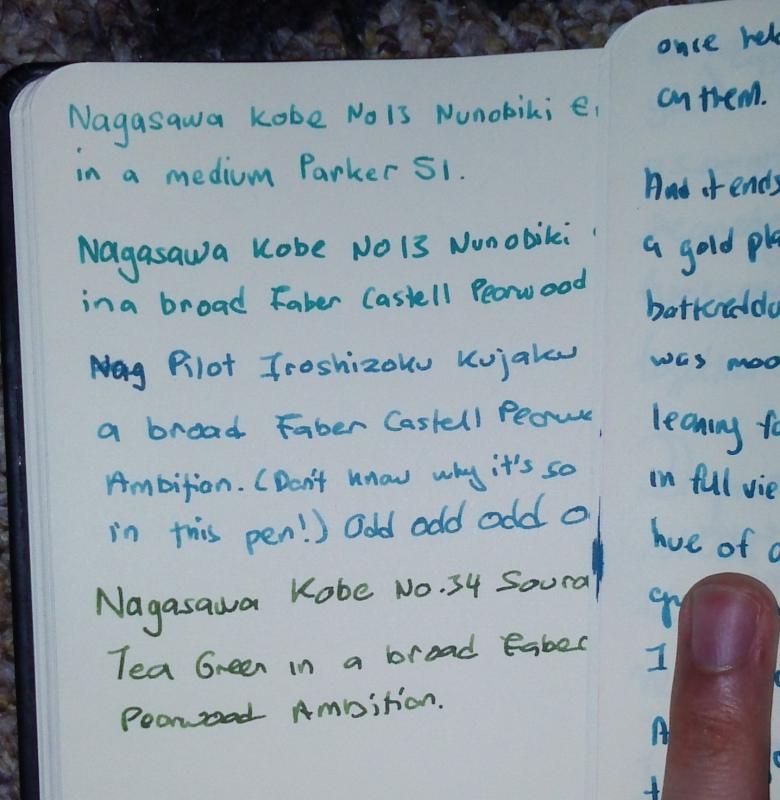 Nagasawa Kobe No 13 Nunobiki E
in a medium Parker 51.
Nagasawa Kobe No 13 Nunobiki
in a broad Faber Castell Pearwood
Nag Pilot Iroshizoku Kujaku
a broad Faber Castell Pearw
Ambition. (Don't know why it's so
in this pen!) Odd odd odd o
Nagasawa Kobe No.34 Soura
Tea Green in a broad Faber
Pearwood Ambition.
once held
on them.
And it ends
a gold pla
was moo
leaning fo
in full vie
hue of a
I
A
t